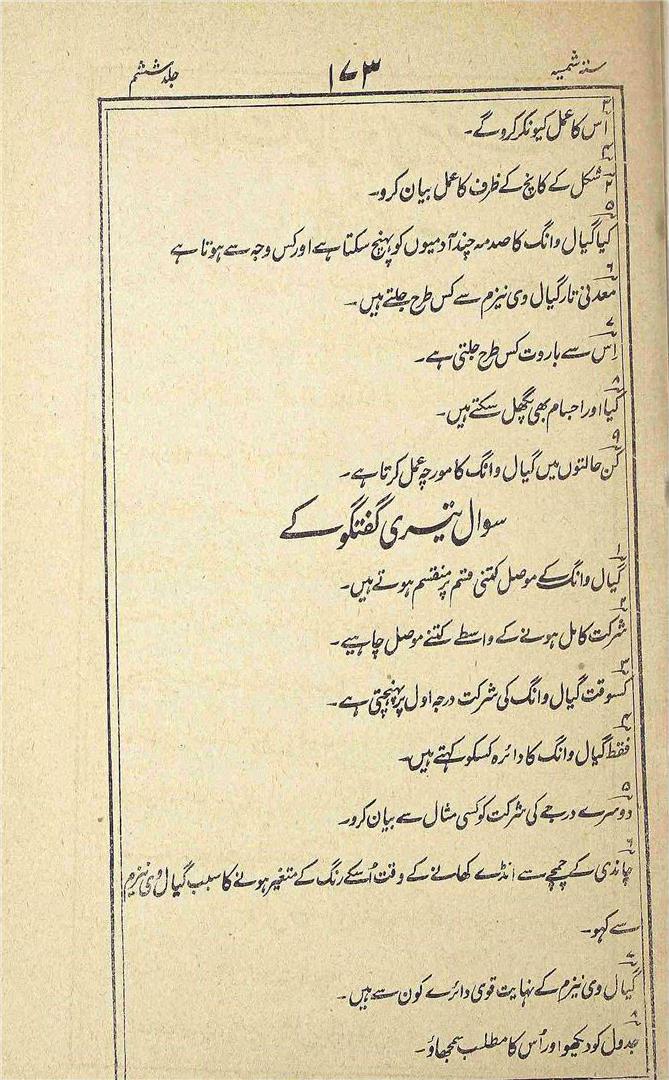 ستہ شمسیہ ۱۷۳ جلد ششم
۳
اس کا عمل کیونکر کرو گے۔
۴
۲ شکل کے کانچ کے ظرف کا عمل بیان کرو۔
۵
کیا گیال وانگ کا صدمہ چند آدمیوں کو پہنچ سکتا ہے اور کس وجہ سے ہوتا ہے
۶
معدنی تار گیال وی نیزم سے کس طرح جلتے ہیں۔
۷
اِس سے باروت کس طرح جلتی ہے۔
۸
کیا اور اجسام بھی پگھل سکتے ہیں۔
۹
کن حالتوں میں گیال وانگ کا مورچہ عمل کرتا ہے۔
سوال تیسری گفتگو کے
۱
گیال وانگ کے موصل کتنی قسم پر منقسم ہوتے ہیں۔
۲
شرکت کامل ہونے کے واسطے کتنے موصل چاہیے۔
۳
کسوقت گیال وانگ کی شرکت درجہ اول پر پہنچتی ہے۔
۴
فقط گیال وانگ کا دائرہ کسکو کہتے ہیں۔
۵
دوسرے درجے کی شرکت کو کسی مثال سے بیان کرو۔
۶
چاندی کے چمچے سے انڈے کھانے کے وقت اُسکے رنگ کے متغیر ہونے کا سبب گیال وی نیزم
سے کہو۔
۷
گیال وی نیزم کے نہایت قوی دائرے کون سے ہیں۔
۸
جدول کو دیکھو اور اُس کا مطلب سمجھاؤ۔